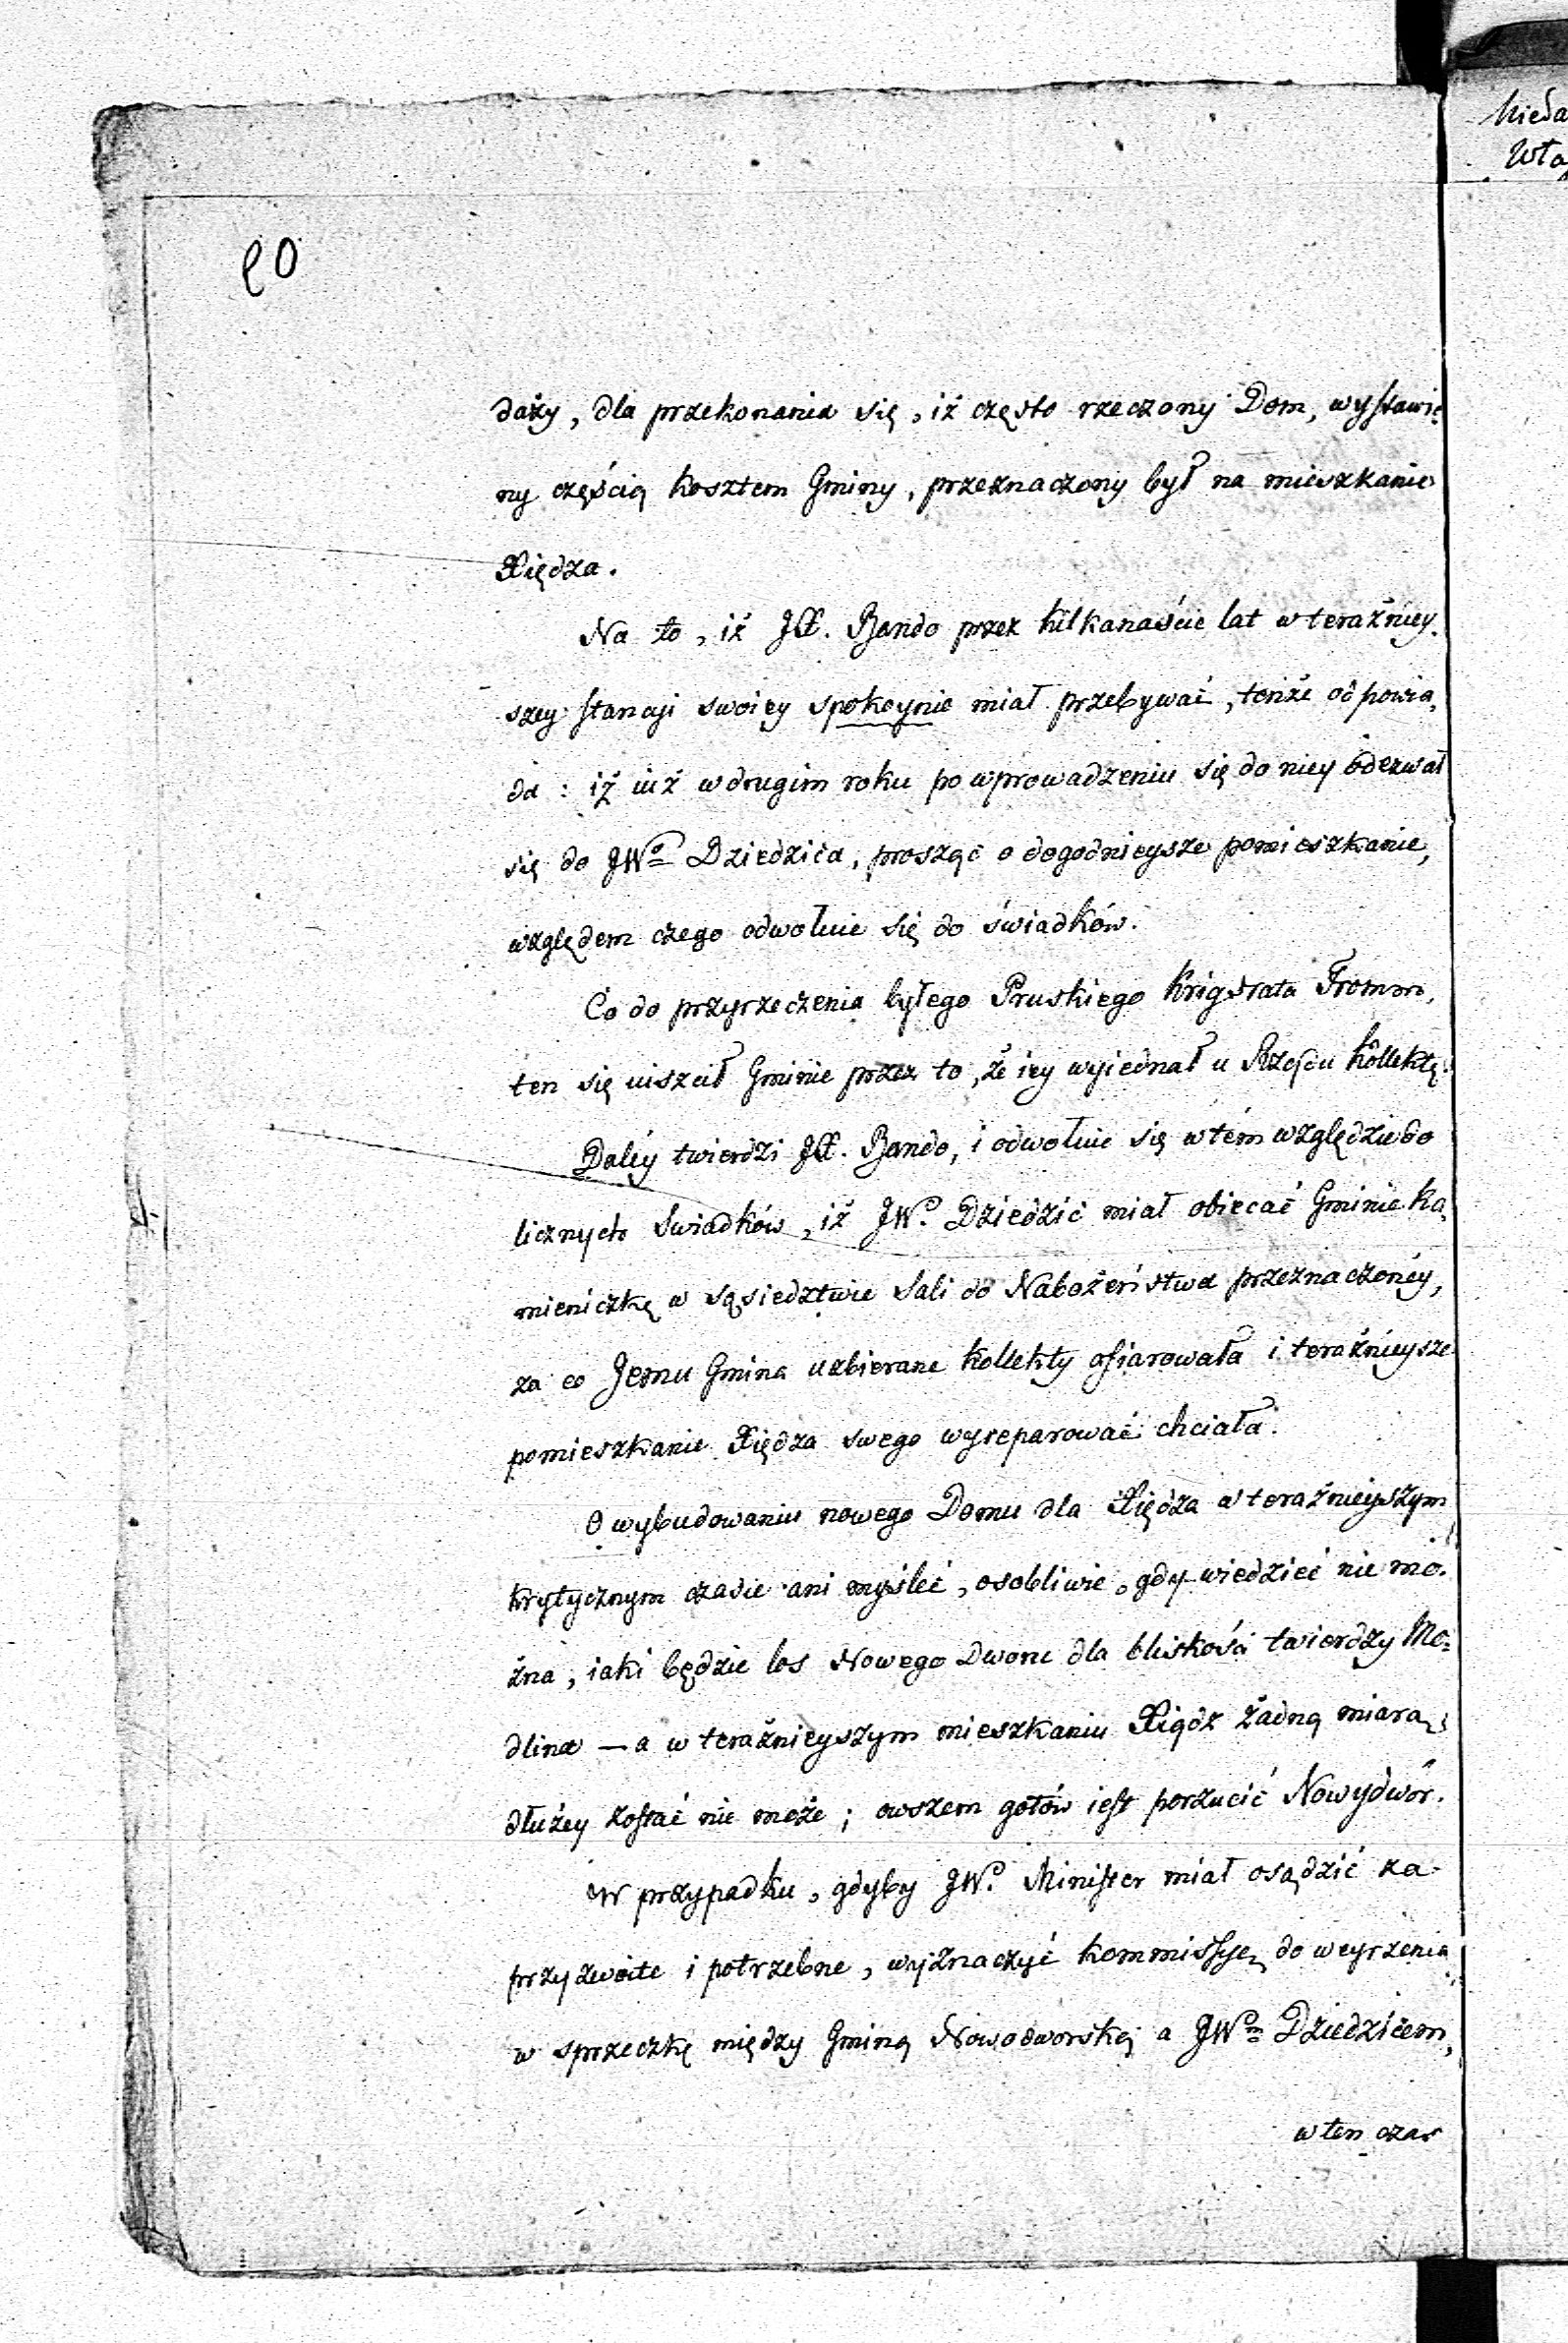 Nieda
Wła
90
daży, dla przekonania się, iż często rzeczony Dom, wystawio-
ny częścią kosztem Gminy, przeznaczony był na mieszkanie
Xiędza.
Na to, iż JX. Bando przez kilkanaście lat w teraźniey-
szey stancyi swoiey spokoynie miał przebywać, tenże odpowia-
da: iż iuż w drugim roku po wprowadzeniu się do niey odezwał
się do JWo Dziedzica, prosząc o dogodnieysze pomieszkanie,
względem czego odwołuie się do świadków.
Co do przyrzeczenia byłego Pruskiego Krigsrata Fromm,
ten się uiszcił Gminie przez to, że iey wyiednał u Rządu kollektę.
Daléy twierdzi JX. Bando, i odwołuie się w tém względzie do
licznych Świadków, iż JW. Dziedzic miał obiecać Gminie ka-
mieniczkę w sąsiedztwie Sali do Nabożeństwa przeznaczonéy,
za co Jemu Gmina uzbierane kollekty ofiarowała i teraźnieysze
pomieszkanie Xiędza swego wyreparować chciała.
O wybudowaniu nowego Domu dla Xiędza w teraźnieyszym
krytycznym czasie ani myśleć, osobliwie, gdy wiedzieć nie mo-
żna, iaki będzie los Nowego Dworu dla bliskości twierdzy Mo-
dlina — a w teraźnieyszym mieszkaniu Xiądz żadną miarą
dłużey zostać nie może; owszem gotów iest porzucić Nowydwór.
W przypadku, gdyby JW. Minister miał osądzić za
przyzwoite i potrzebne, wyznaczyć kommissyę do weyrzenia
w sprzeczkę między Gminą Nowodworską a JWm Dziedzicem,
w ten czas